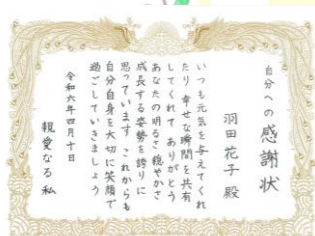 自分への感謝状
羽田花子殿
いつも元気を与えてくれ
たり 幸せな瞬間を共有
してくれて ありがとう
あなたの明るさ 穏やかさ
成長する姿勢を誇りに
思っています これからも
自分自身を大切に笑顔で
過ごしていきましょう
令和六年四月十日
親愛なる 私